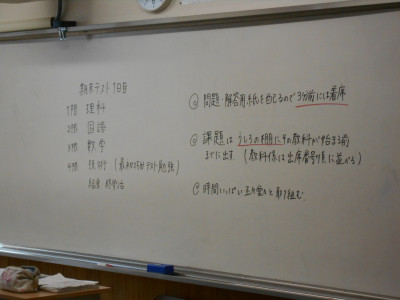 期末テスト1日目
1限 理科
2限 国語
3限 数学
4限 技術 (最初25分テスト勉強)
給食・帰学活
◎ 問題・解答用紙を配るので 3分前には着席
◎ 課題は うしろの棚にその教科が始まる前
までに出す (教科係は出席番号順に並べる)
◎ 時間いっぱい 取り組む